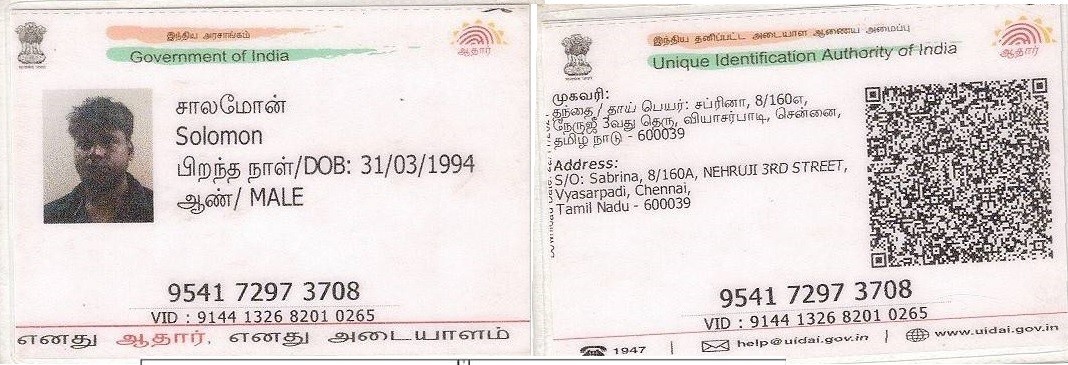 இந்திய அரசாங்கம்
Government of India
ஆதார்
சாலமோன்
Solomon
பிறந்த நாள்/DOB: 31/03/1994
ஆண்/ MALE
9541 7297 3708
VID : 9144 1326 8201 0265
எனது ஆதார், எனது அடையாளம்
இந்திய தனிப்பட்ட அடையாள ஆணைய அமைப்பு
Unique Identification Authority of India
ஆதார்
முகவரி:
தந்தை / தாய் பெயர்: சப்ரினா, 8/160எ,
நேருஜீ 3வது தெரு, வியாசர்பாடி, சென்னை,
தமிழ் நாடு - 600039
Address:
S/O: Sabrina, 8/160A, NEHRUJI 3RD STREET,
Vyasarpadi, Chennai,
Tamil Nadu - 600039
9541 7297 3708
VID : 9144 1326 8201 0265
1947 | help@uidai.gov.in | www.uidai.gov.in